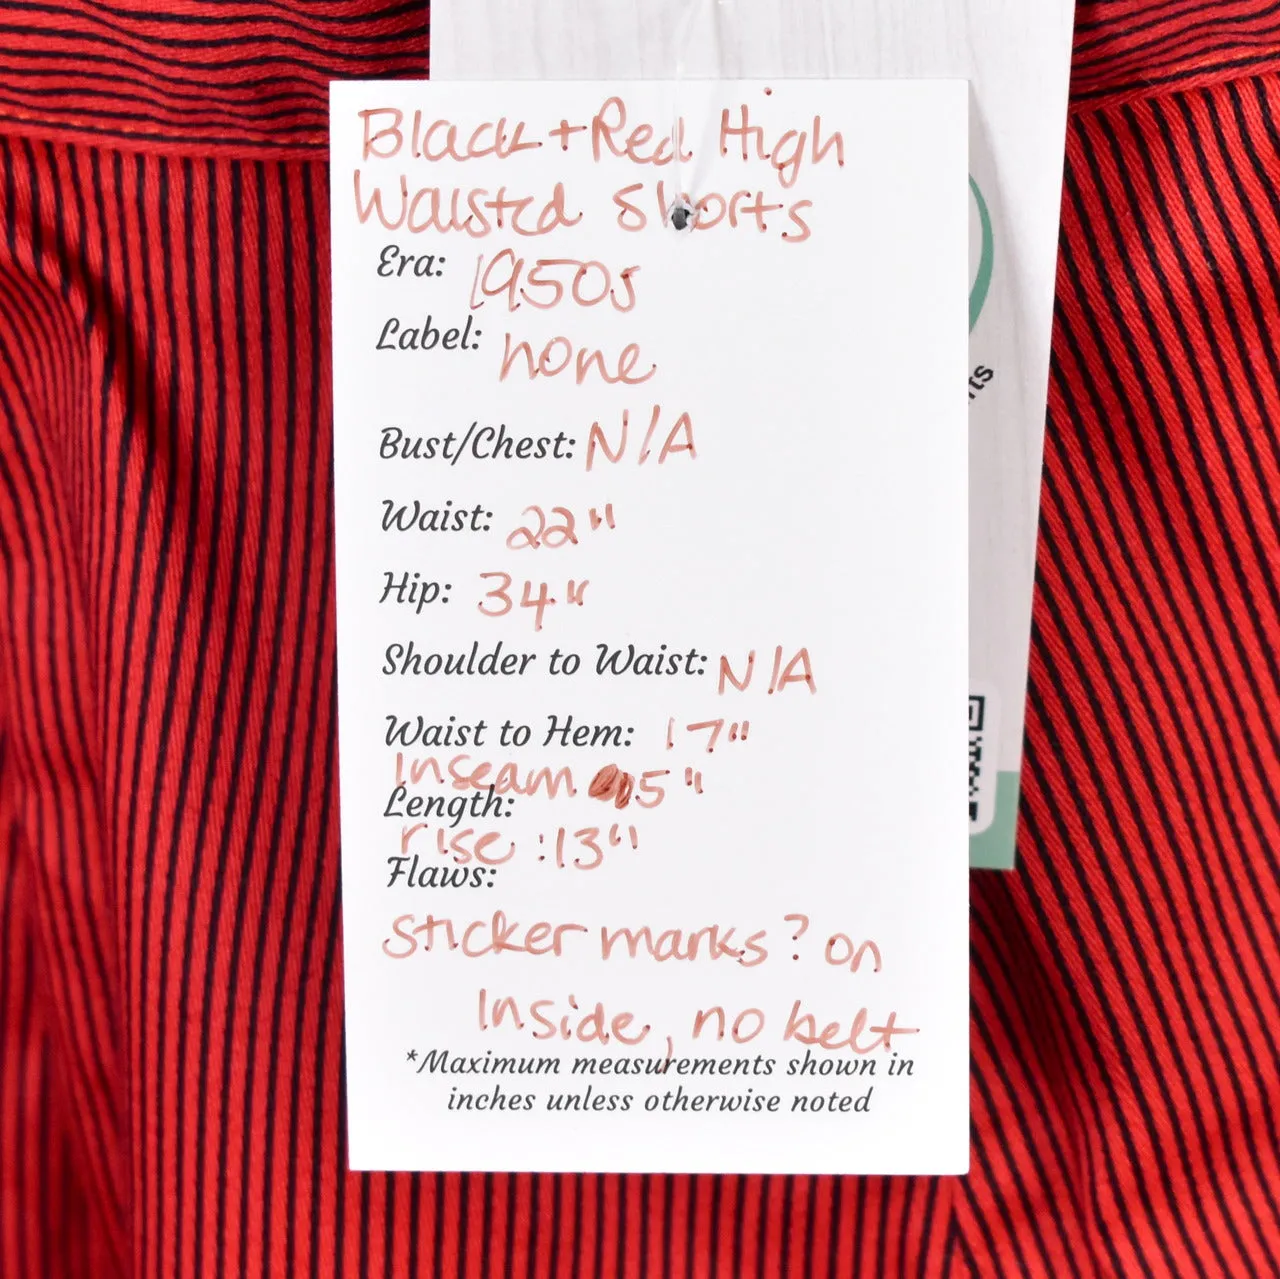 Black + Red High
Waisted Shorts
Era: 1950s
Label: none
Bust/Chest: N/A
Waist: 22"
Hip: 34"
Shoulder to Waist: N/A
Waist to Hem: 17"
Inseam 5"
Length:
rise: 13"
Flaws:
Sticker marks? on
Inside, no belt
*Maximum measurements shown in
inches unless otherwise noted